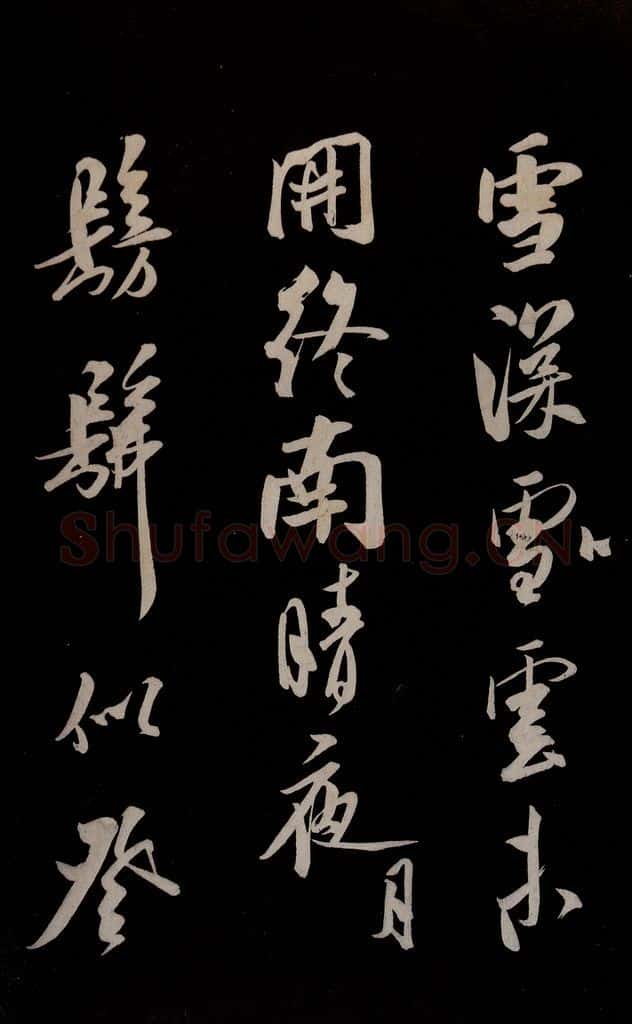 雪深雪雲未
開終南晴夜月
髣髴似登
Shufawang.CN